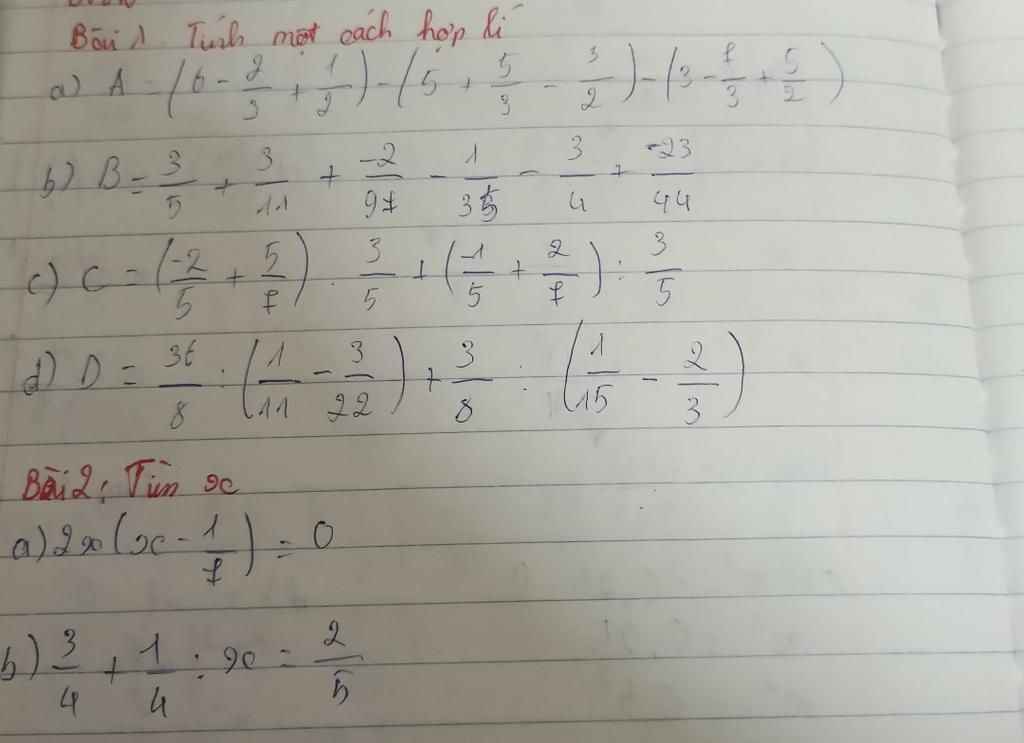 Bài 1 Tính một cách hợp lí
a) A = (6 - 2/3 + 1/2) - (5 + 5/3 - 3/2) - (3 - 7/3 + 5/2)
b) B = 3/5 + 3/11 + -2/97 - 1/35 - 3/4 + -23/44
c) C = (-2/5 + 5/7) . 3/5 + (-1/5 + 2/7) : 3/5
d) D = 36/8 : (1/11 - 3/22) + 3/8 : (1/15 - 2/3)
Bài 2: Tìm x
a) 2x(x - 1/7) = 0
b) 3/4 + 1/4 : x = 2/5